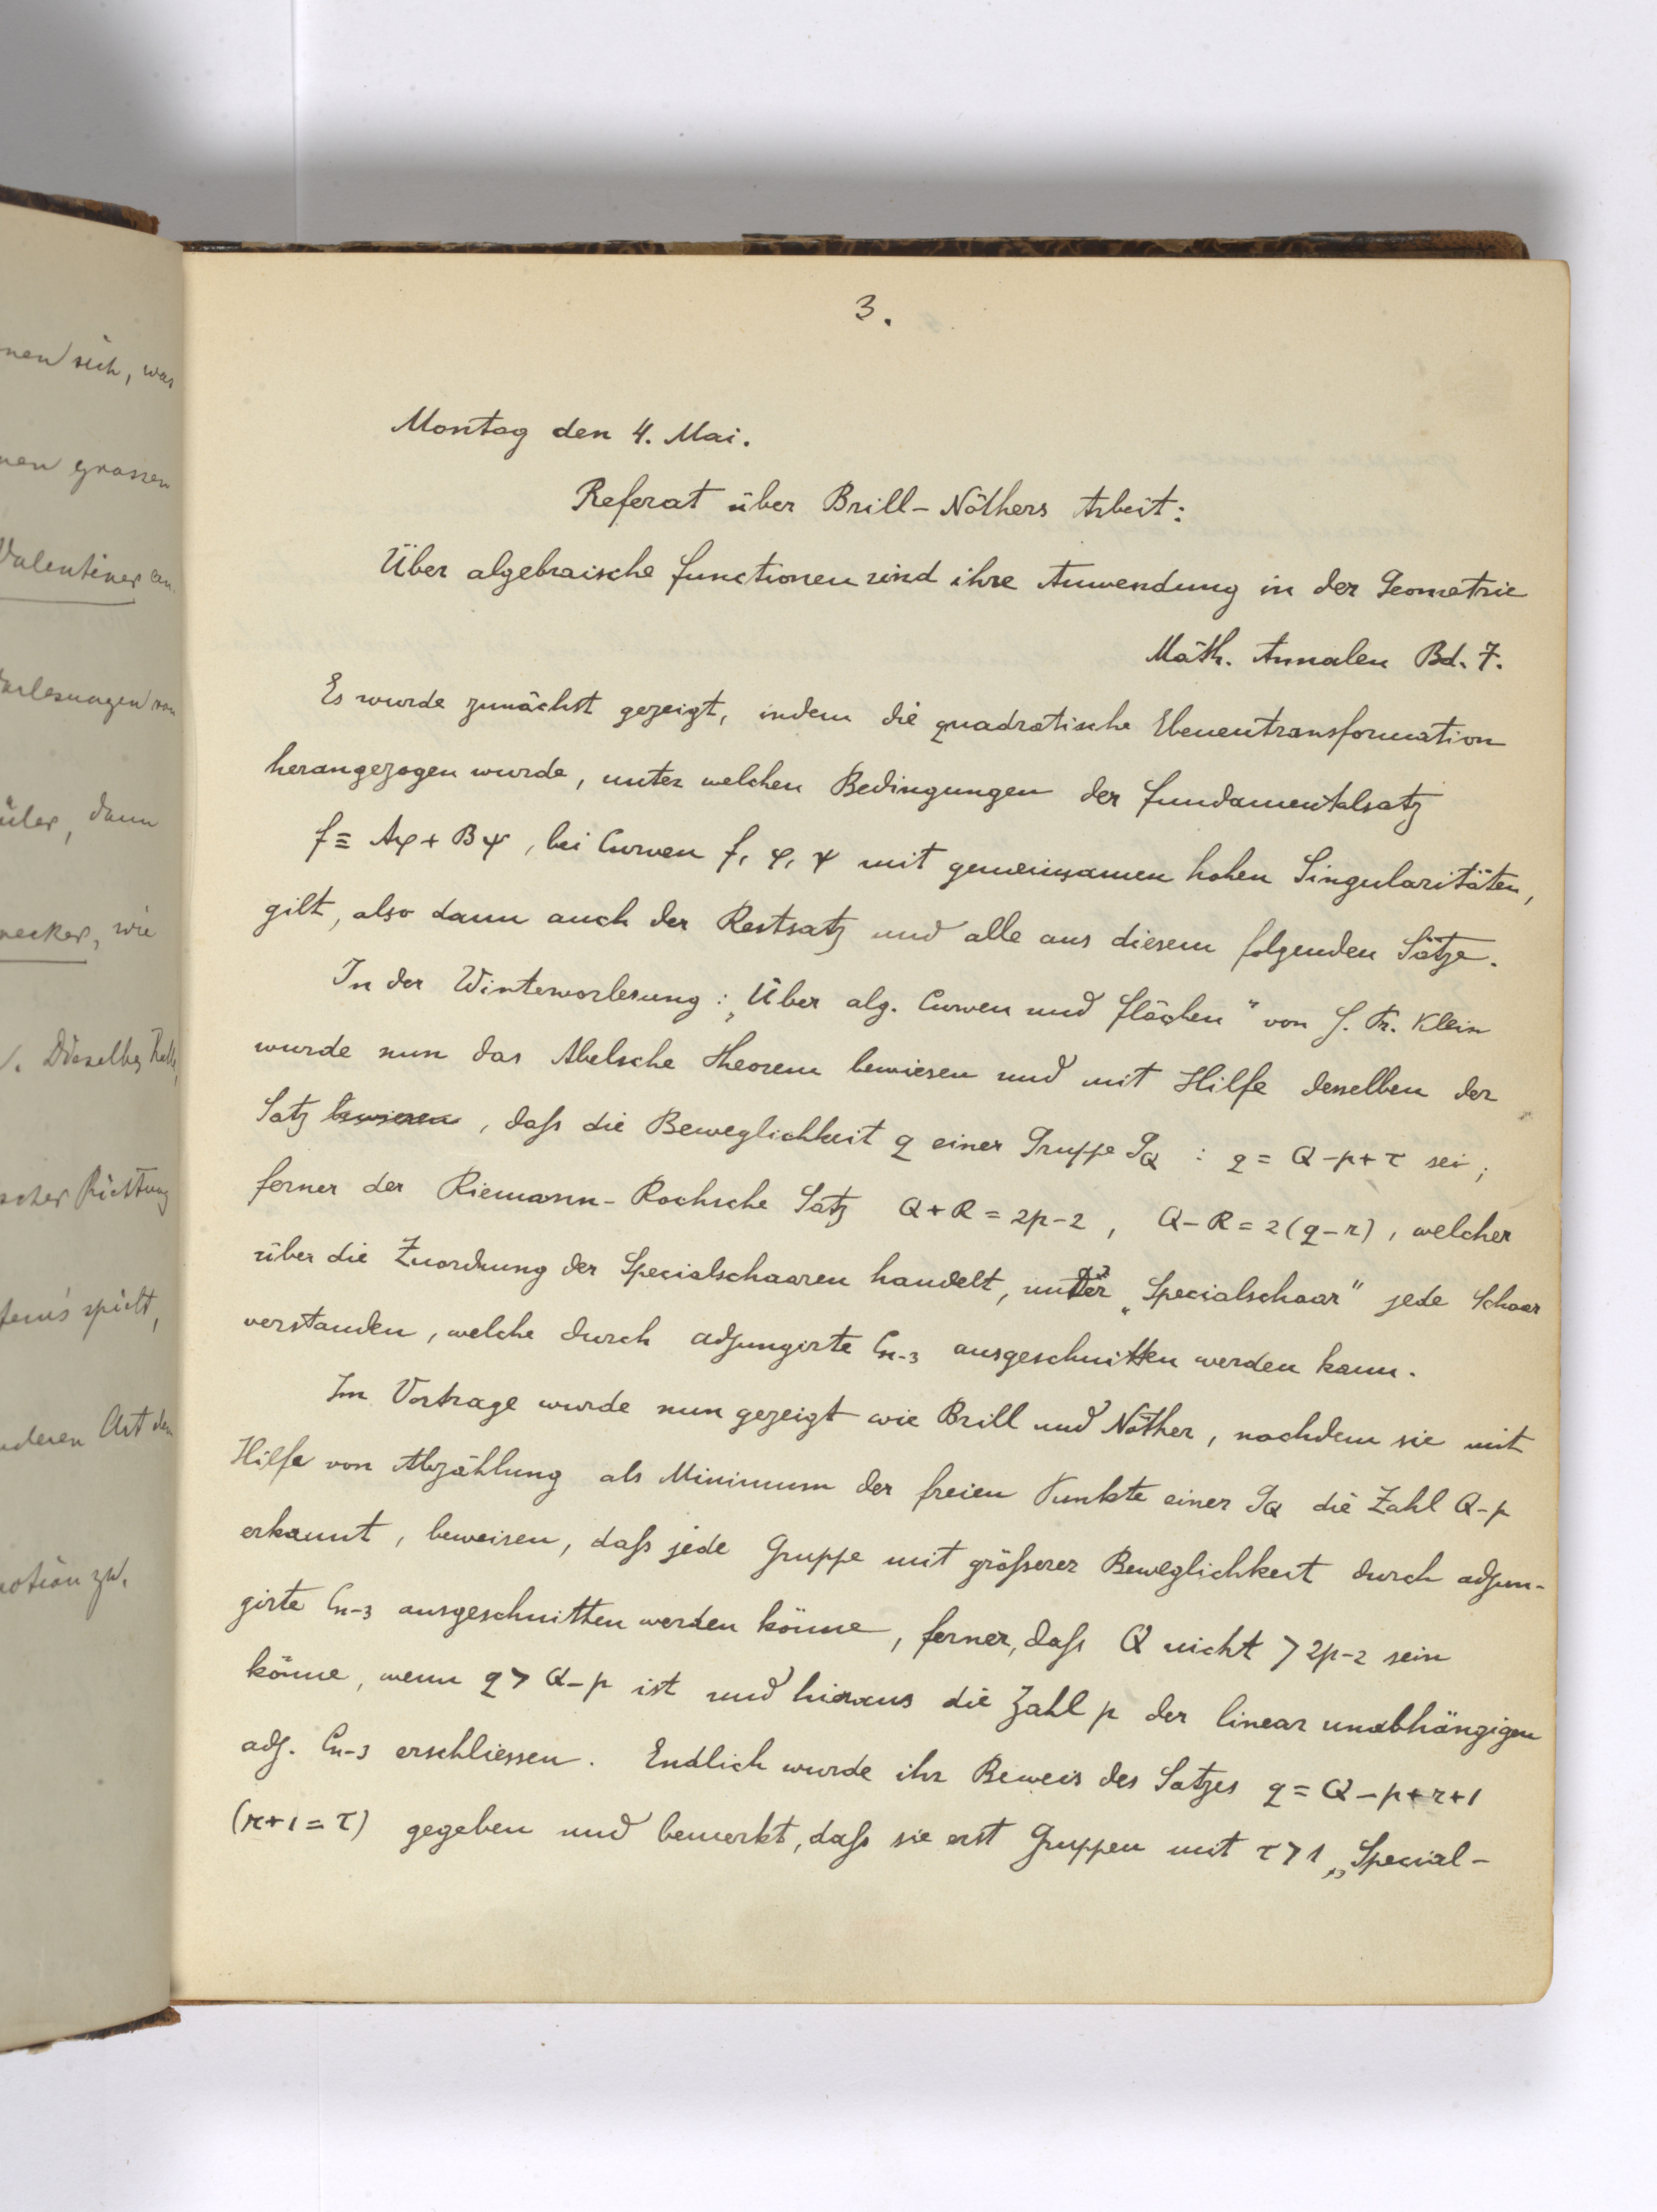 nen sich, was
nen grossen
Valentiner an.
Vorlesungen von
üler, dann
necker, wie
Dieselbe Rolle,
scher Richtung
spielt,
nderen Art den
otion zw.
3.
Montag den 4. Mai.
Referat über Brill-Nöthers Arbeit:
Über algebraische Functionen und ihre Anwendung in der Geometrie
Math. Annalen Bd. 7.
Es wurde zunächst gezeigt, indem die quadratische Ebenentransformation
herangezogen wurde, unter welchen Bedingungen der Fundamentalsatz
f ≡ Aφ + Bψ, bei Curven f, φ, ψ mit gemeinsamen hohen Singularitäten,
gilt, also dann auch der Restsatz und alle aus diesem folgenden Sätze.
In der Wintervorlesung: „Über alg. Curven und Flächen" von H. Pr. Klein
wurde nun das Abelsche Theorem bewiesen und mit Hilfe desselben der
Satz bewiesen, daſs die Beweglichkeit q einer Gruppe G_Q : q = Q-p+τ sei;
ferner der Riemann-Rochsche Satz Q+R = 2p-2, Q-R = 2(q-r), welcher
über die Zuordnung der Specialschaaren handelt, unter „Specialschaar" jede Schaar
verstanden, welche durch adjungirte C_{n-3} ausgeschnitten werden kann.
Im Vortrage wurde nun gezeigt wie Brill und Nöther, nachdem sie mit
Hilfe von Abzählung als Minimum der freien Punkte einer G_Q die Zahl Q-p
erkannt, beweisen, daſs jede Gruppe mit gröſserer Beweglichkeit durch adjun-
girte C_{n-3} ausgeschnitten werden könne, ferner, daſs Q nicht > 2p-2 sein
könne, wenn q > Q-p ist und hieraus die Zahl p der linear unabhängigen
adj. C_{n-3} erschliessen. Endlich wurde ihr Beweis des Satzes q = Q-p+r+1
(r+1 = τ) gegeben und bemerkt, daſs sie erst Gruppen mit τ > 1 „Special-